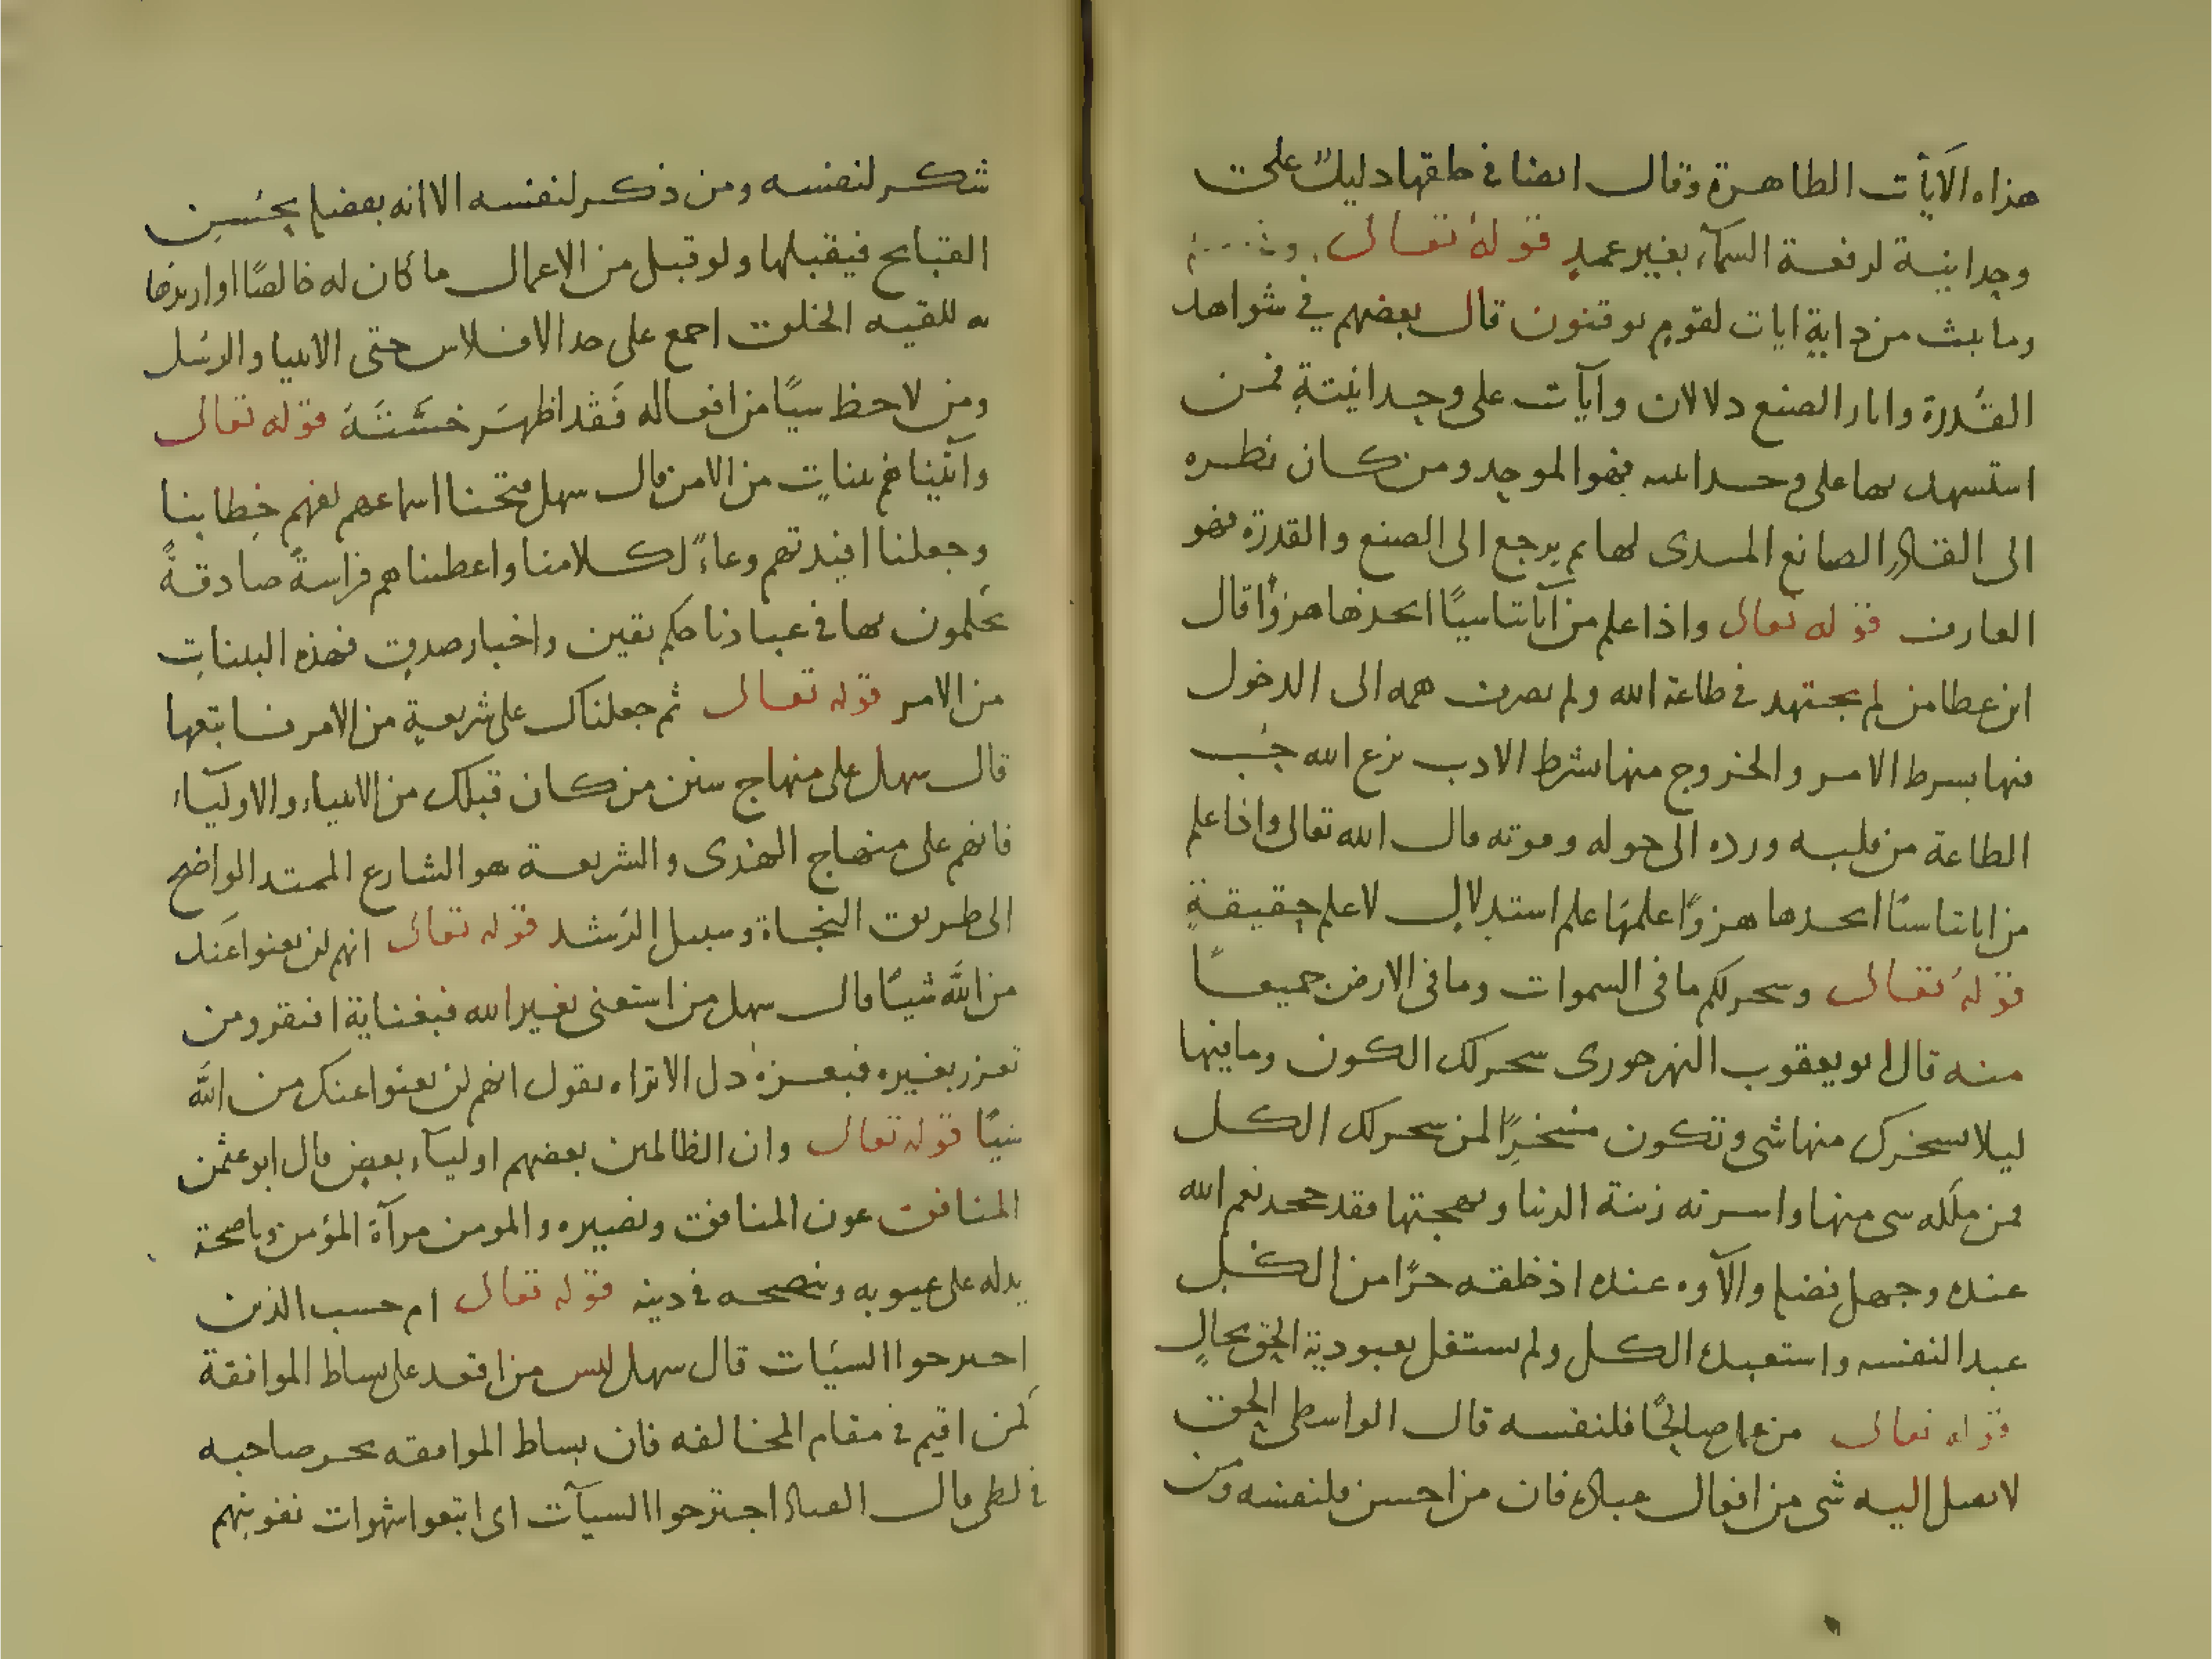 هذه الآيات الظاهرة وقال ايضا في خلقها دليل على
وحدانيته لرفعه السماء بغير عمد قوله تعالى
وما يبث من دابة ايات لقوم يوقنون قال بعضهم في شواهد
القدرة واثار الصنع دلالات وآيات على وحدانيته فمن
استشهد بها على وحدانيه فهو الموحد ومن كان نظره
الى القادر الصانع المبدى لها ثم يرجع الى الصنع والقدرة فهو
العارف قوله تعالى واذا علم من آياتنا شيئًا اتخذها هزؤًا قال
ابن عطا من لم يجتهد في طاعة الله ولم يصرف همه الى الدخول
فيها بشرط الامر والخروج منها بشرط الادب نزع الله حب
الطاعة من قلبه ورده الى حوله وقوته قال الله تعالى واذا علم
من اياتنا شيئًا اتخذها هزوًا علمها علم استدلال لا علم حقيقة
قوله تعالى وسخر لكم ما في السموات وما في الارض جميعًا
منه قال ابو يعقوب النهرجوري سخر لك الكون وما فيها
ليلا يسخرك منها شي وتكون مسخرًا لمن سخر لك الكل
فمن ملكه شي منها واسرته زينة الدنيا وبهجتها فقد جحد نعم الله
عنده وجهل فضله وآلآوه عنده اذ خلقه حرًا من الكل
عبدا لنفسه واستعبده الكل ولم يشتغل بعبودية الحق بحال
قوله تعالى من عمل صالحًا فلنفسه قال الواسطي الحق
لا يصل اليه شي من افعال عباده فان من احسن فلنفسه ومن
شكر لنفسه ومن ذكر لنفسه الا انه بفضله يحسن
القبايح فيقبلها ولو قبل من الاعمال ما كان له خالصًا او اريد بها
به للقيه الخلق اجمع على حد الافلاس حتى الانبيا والرسل
ومن لاحظ شيًا من افعاله فقد اظهر خسته قوله تعالى
وآتينا هم بينات من الامر قال سهل فتحنا اسماعهم لفهم خطابنا
وجعلنا افيدتهم وعاءً لكلامنا واعطيناهم فراسةً صادقةً
يحكمون بها في عبادنا حكم يقين واخبار صدق فهذه البينات
من الامر قوله تعالى ثم جعلناك على شريعة من الامر فاتبعها
قال سهل على منهاج سنن من كان قبلك من الانبياء والاولياء
فانهم على منهاج الهدى والشريعة هو الشارع الممتد الواضح
الى طريق النجاة وسبيل الرشد قوله تعالى انهم لن يغنوا عنك
من الله شيئًا قال سهل من استغنى بغير الله فبغنايه افتقر ومن
تعزز بغيره فبعزه ذل الا تراه يقول انهم لن يغنوا عنك من الله
شيئًا قوله تعالى وان الظالمين بعضهم اولياء بعض قال ابو عثمن
المنافق عون المنافق ونصيره والمومن مرآة المؤمن وناصحة
يدله على عيوبه وينصحه في دينه قوله تعالى ام حسب الذين
اجترحوا السيئات قال سهل ليس من اقعد على بساط الموافقة
كمن اقيم في مقام المخالفه فان بساط الموافقه يجر صاحبه
في لظى قال اجترحوا السيآت اى اتبعوا شهوات نفوسهم